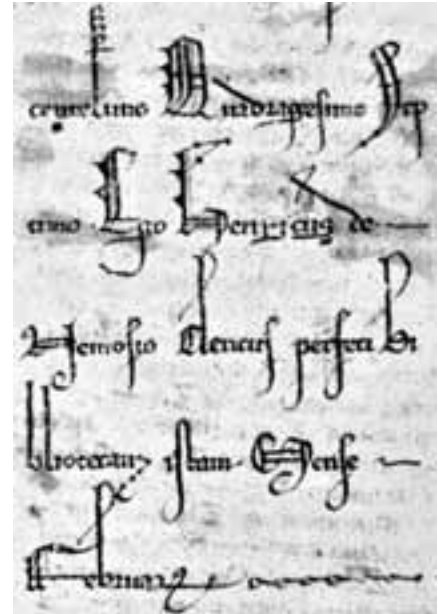 centesimo Quadragesimo Sep
timo Ego Henricus de
Nemosio Clericus perfeci Bi
bliotecam istam. Mense
Februar